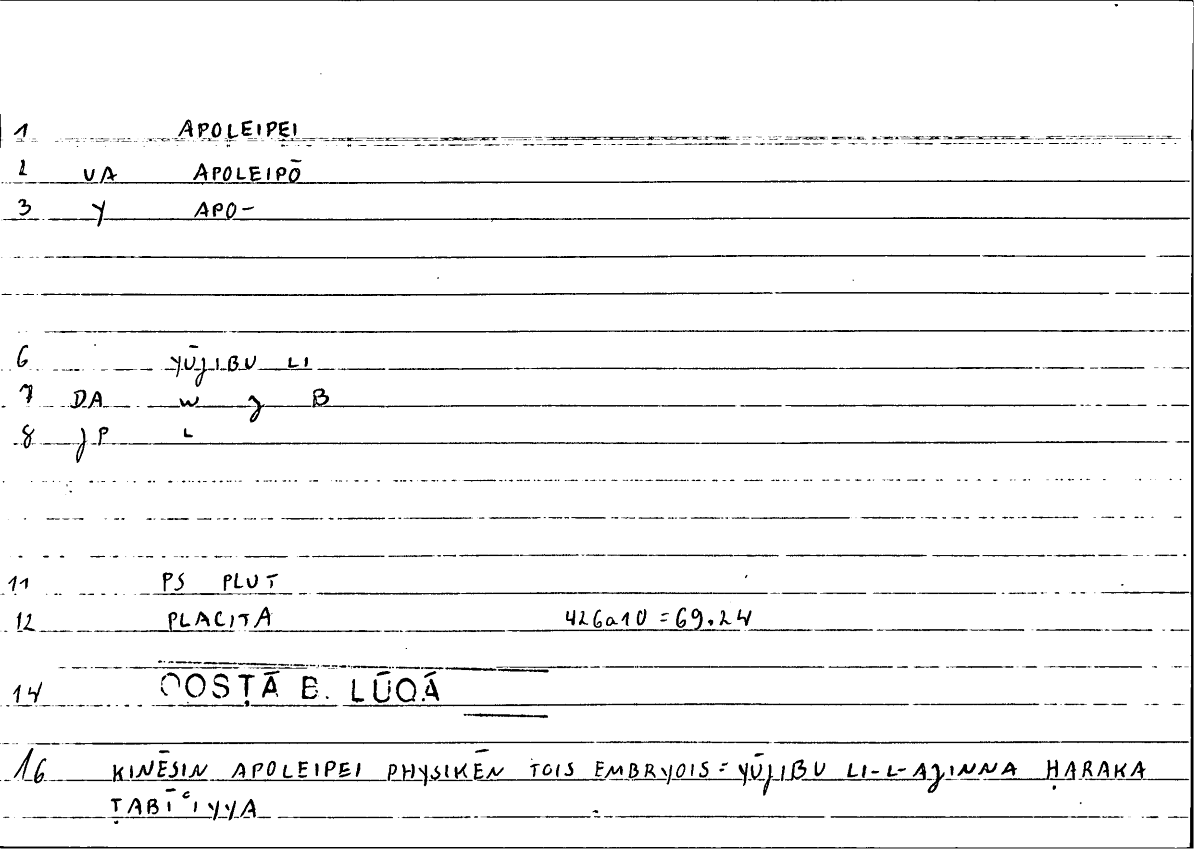 1 APOLEIPEI
2 VA APOLEIPŌ
3 Y APO-
6 YŪJIBU LI
7 DA W J B
8 JP L
11 PS PLUT
12 PLACITA 426a10 = 69.24
14 QOSṬĀ B. LŪQĀ
16 KINĒSIN APOLEIPEI PHYSIKĒN TOIS EMBRYOIS = YŪJIBU LI-L-AJINNA ḤARAKA
ṬABĪʿIYYA